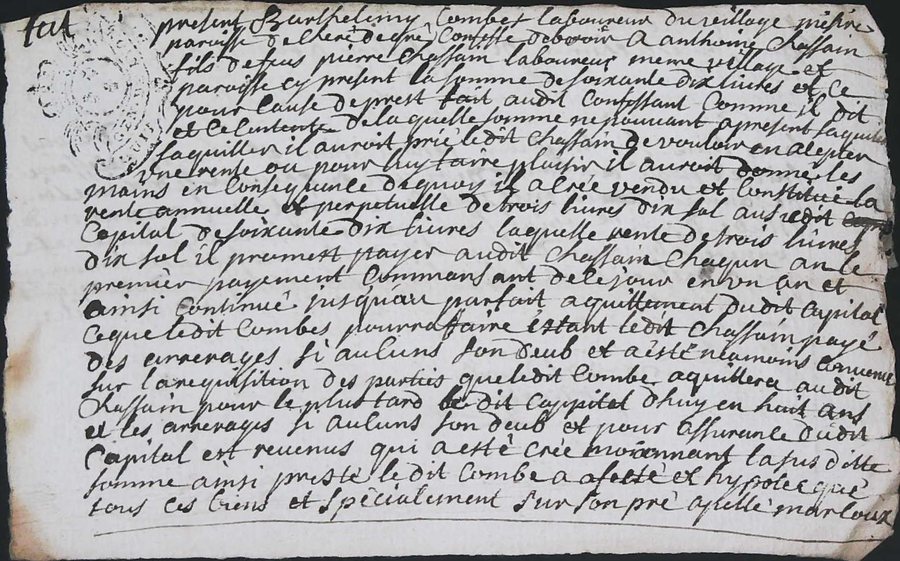 fut present Barthelimy Combes laboureur du veillage
paroisse de Confesse debvoir A anthoine Chassain
fils de feus pierre Chassain laboureur meme village et
paroisse Cy present la somme de soixante dix livres et ce
pour Cause de prest fait audit Confessant Comme il dit
et ce Contente de laquelle somme ne pouvant apresent
saquitter il auroit prié ledit Chassain de vouloir en
vne rente ou pour luy faire plaisir il auroit donne les
mains en Consequance dequoy il a Crée vendu et Constitué la
rente annuelle et perpetuelle de trois livres dix sol au sudit
Capital de soixante dix livres laquelle rente de trois livres
dix sol il promett payer audit Chassain Chaqun an le
premier payement Commansant de le jour en vn an et
ainsi Continué jusquau parfait aquittement dudit Capital
Ceque ledit Combes pourra ffaire éstant ledit Chassain payé
des arrerages si aucuns son deub et a esté neamoins Convenu
sur la requisition des parties que ledit Combe aquittera audit
Chassain pour le plus tard le dit Cappital dhuy en huit ans
et les arrerages si aucuns son deub et pour assurance dudit
Capital est revenus qui a esté Crée moiennant la sus ditte
somme ainsi presté le dit Combe a afecté et hypotecqué
tous ces biens et spécialement sur son pré apellé marloux